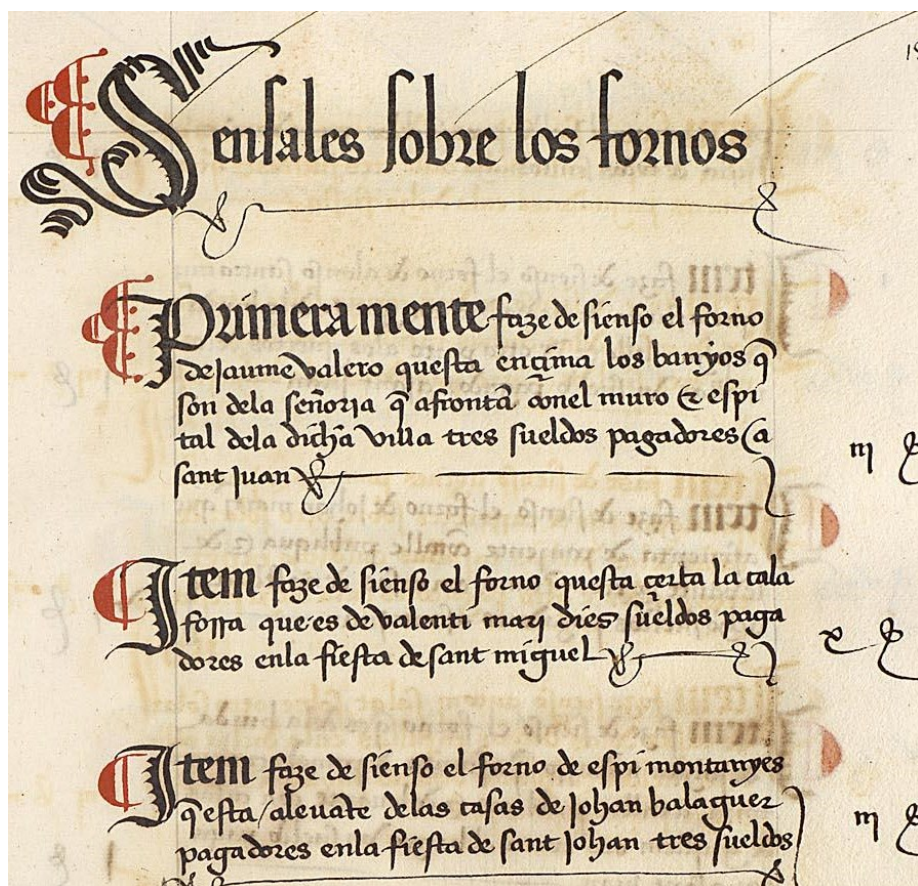 Sensales sobre los fornos
Primeramente faze de sienso el forno
de jaume valero questa ençima los banyos q̃
son dela señoria q̃ afrontã conel muro & espi
tal dela dicha villa tres sueldos pagadores a
sant juan
iij
Item faze de sienso el forno questa çerca la cala
forra que es de valenti mari dies sueldos paga
dores enla fiesta de sant miguel
x
Item faze de sienso el forno de espi montanyes
q̃ esta alevãte delas casas de johan balaguer
pagadores enla fiesta de sant johan tres sueldos
iij